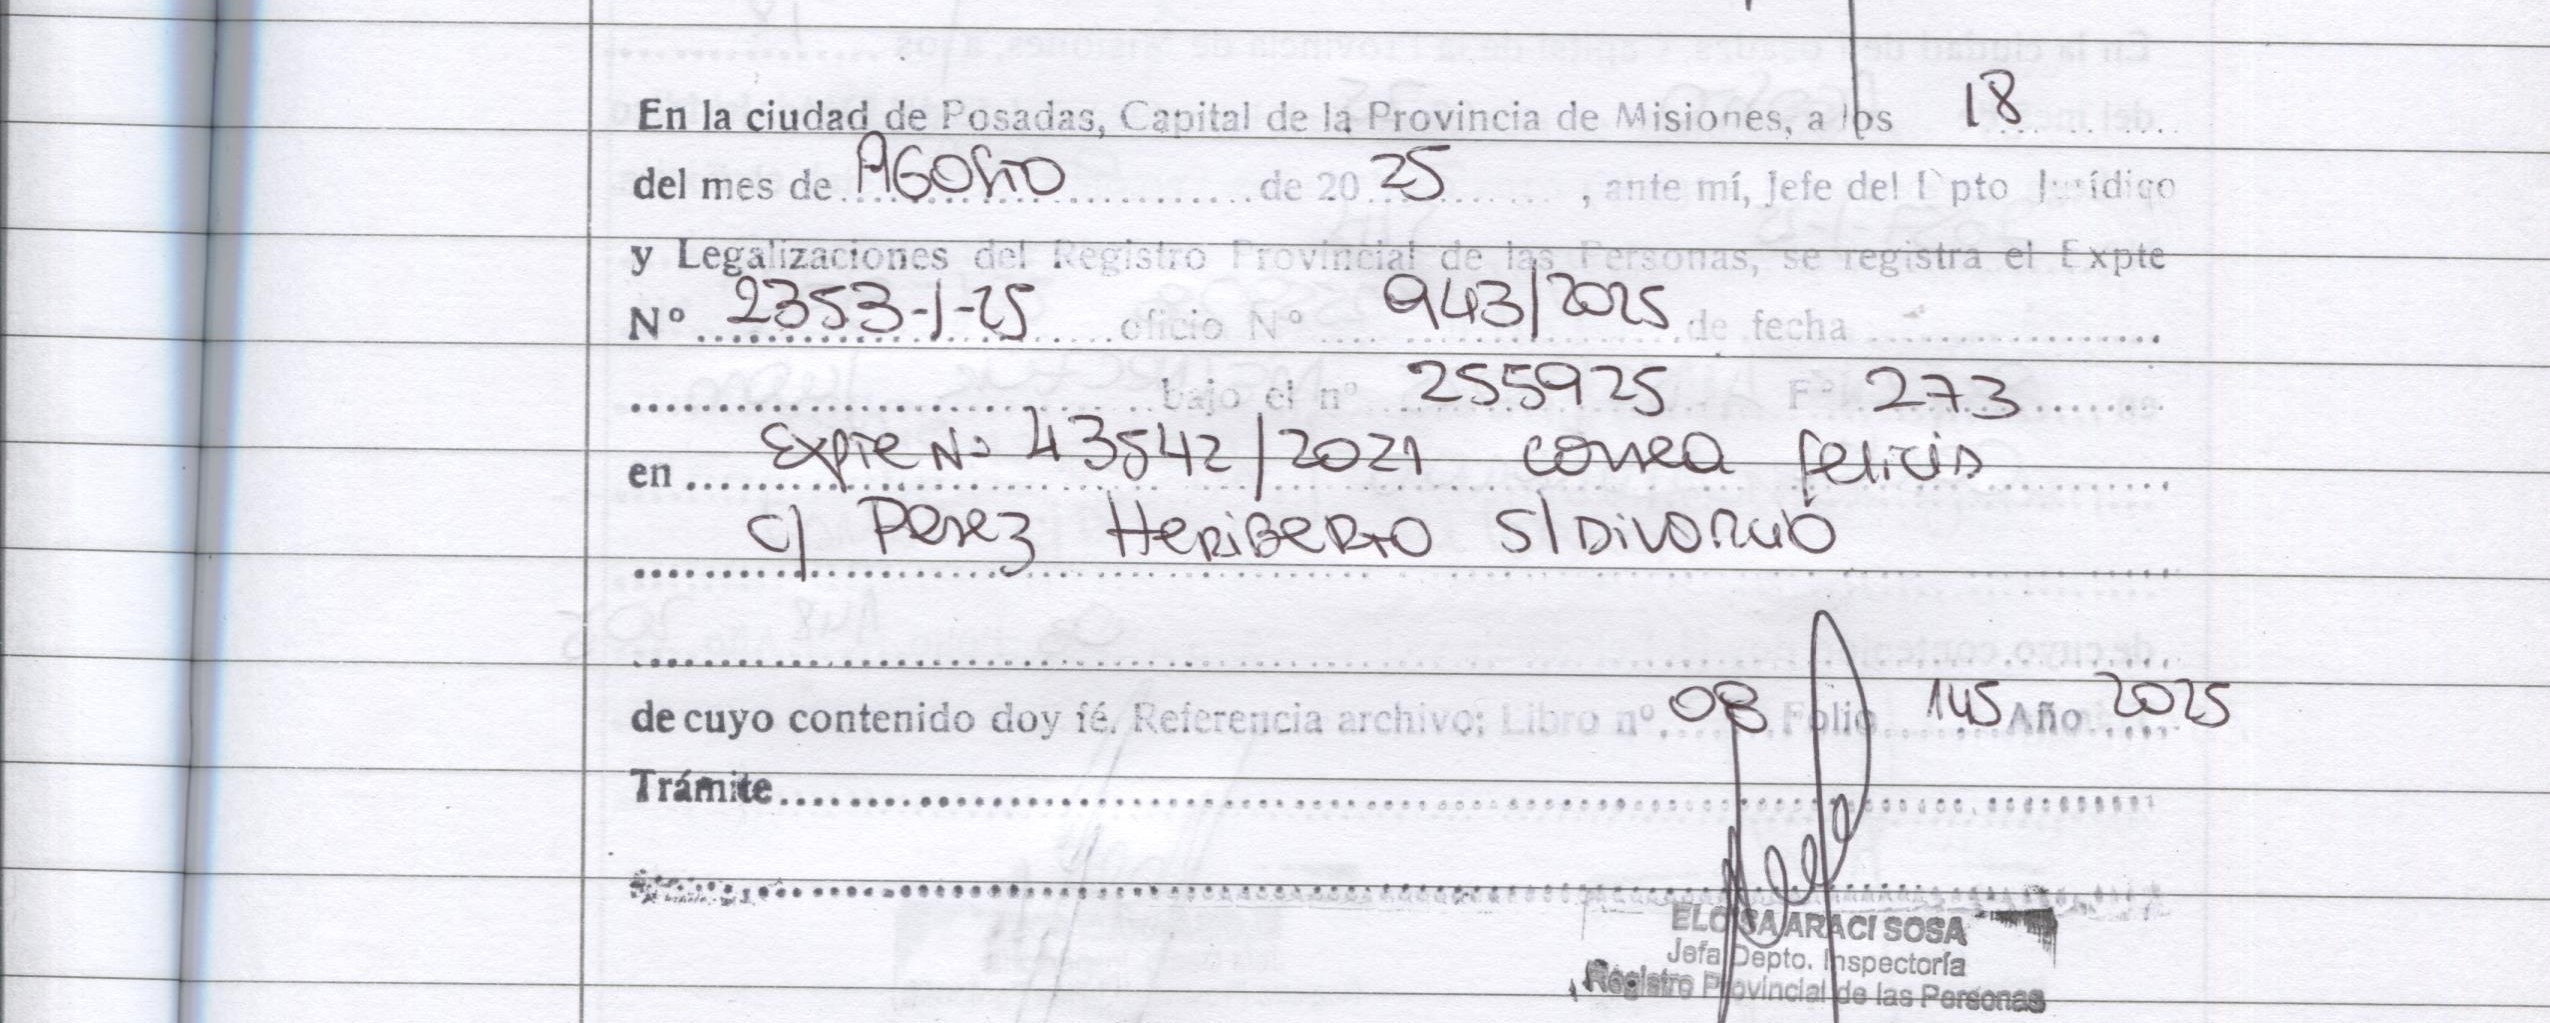 En la ciudad de Posadas, Capital de la Provincia de Misiones, a los 18
del mes de AGOSTO de 20 25, ante mí, Jefe del Dpto Jurídico
y Legalizaciones del Registro Provincial de las Personas, se registra el Expte
Nº 2353-J-25 oficio Nº 943/2025 de fecha
bajo el nº 255925 Fº 273
en Expte Nº 43542/2021 Correa Felicia
c/ Perez Heriberto S/Divorcio
de cuyo contenido doy fé. Referencia archivo; Libro nº 08 Folio 145 Año 2025
Trámite
ELOISA ARACI SOSA
Jefa Depto. Inspectoría
Registro Provincial de las Personas